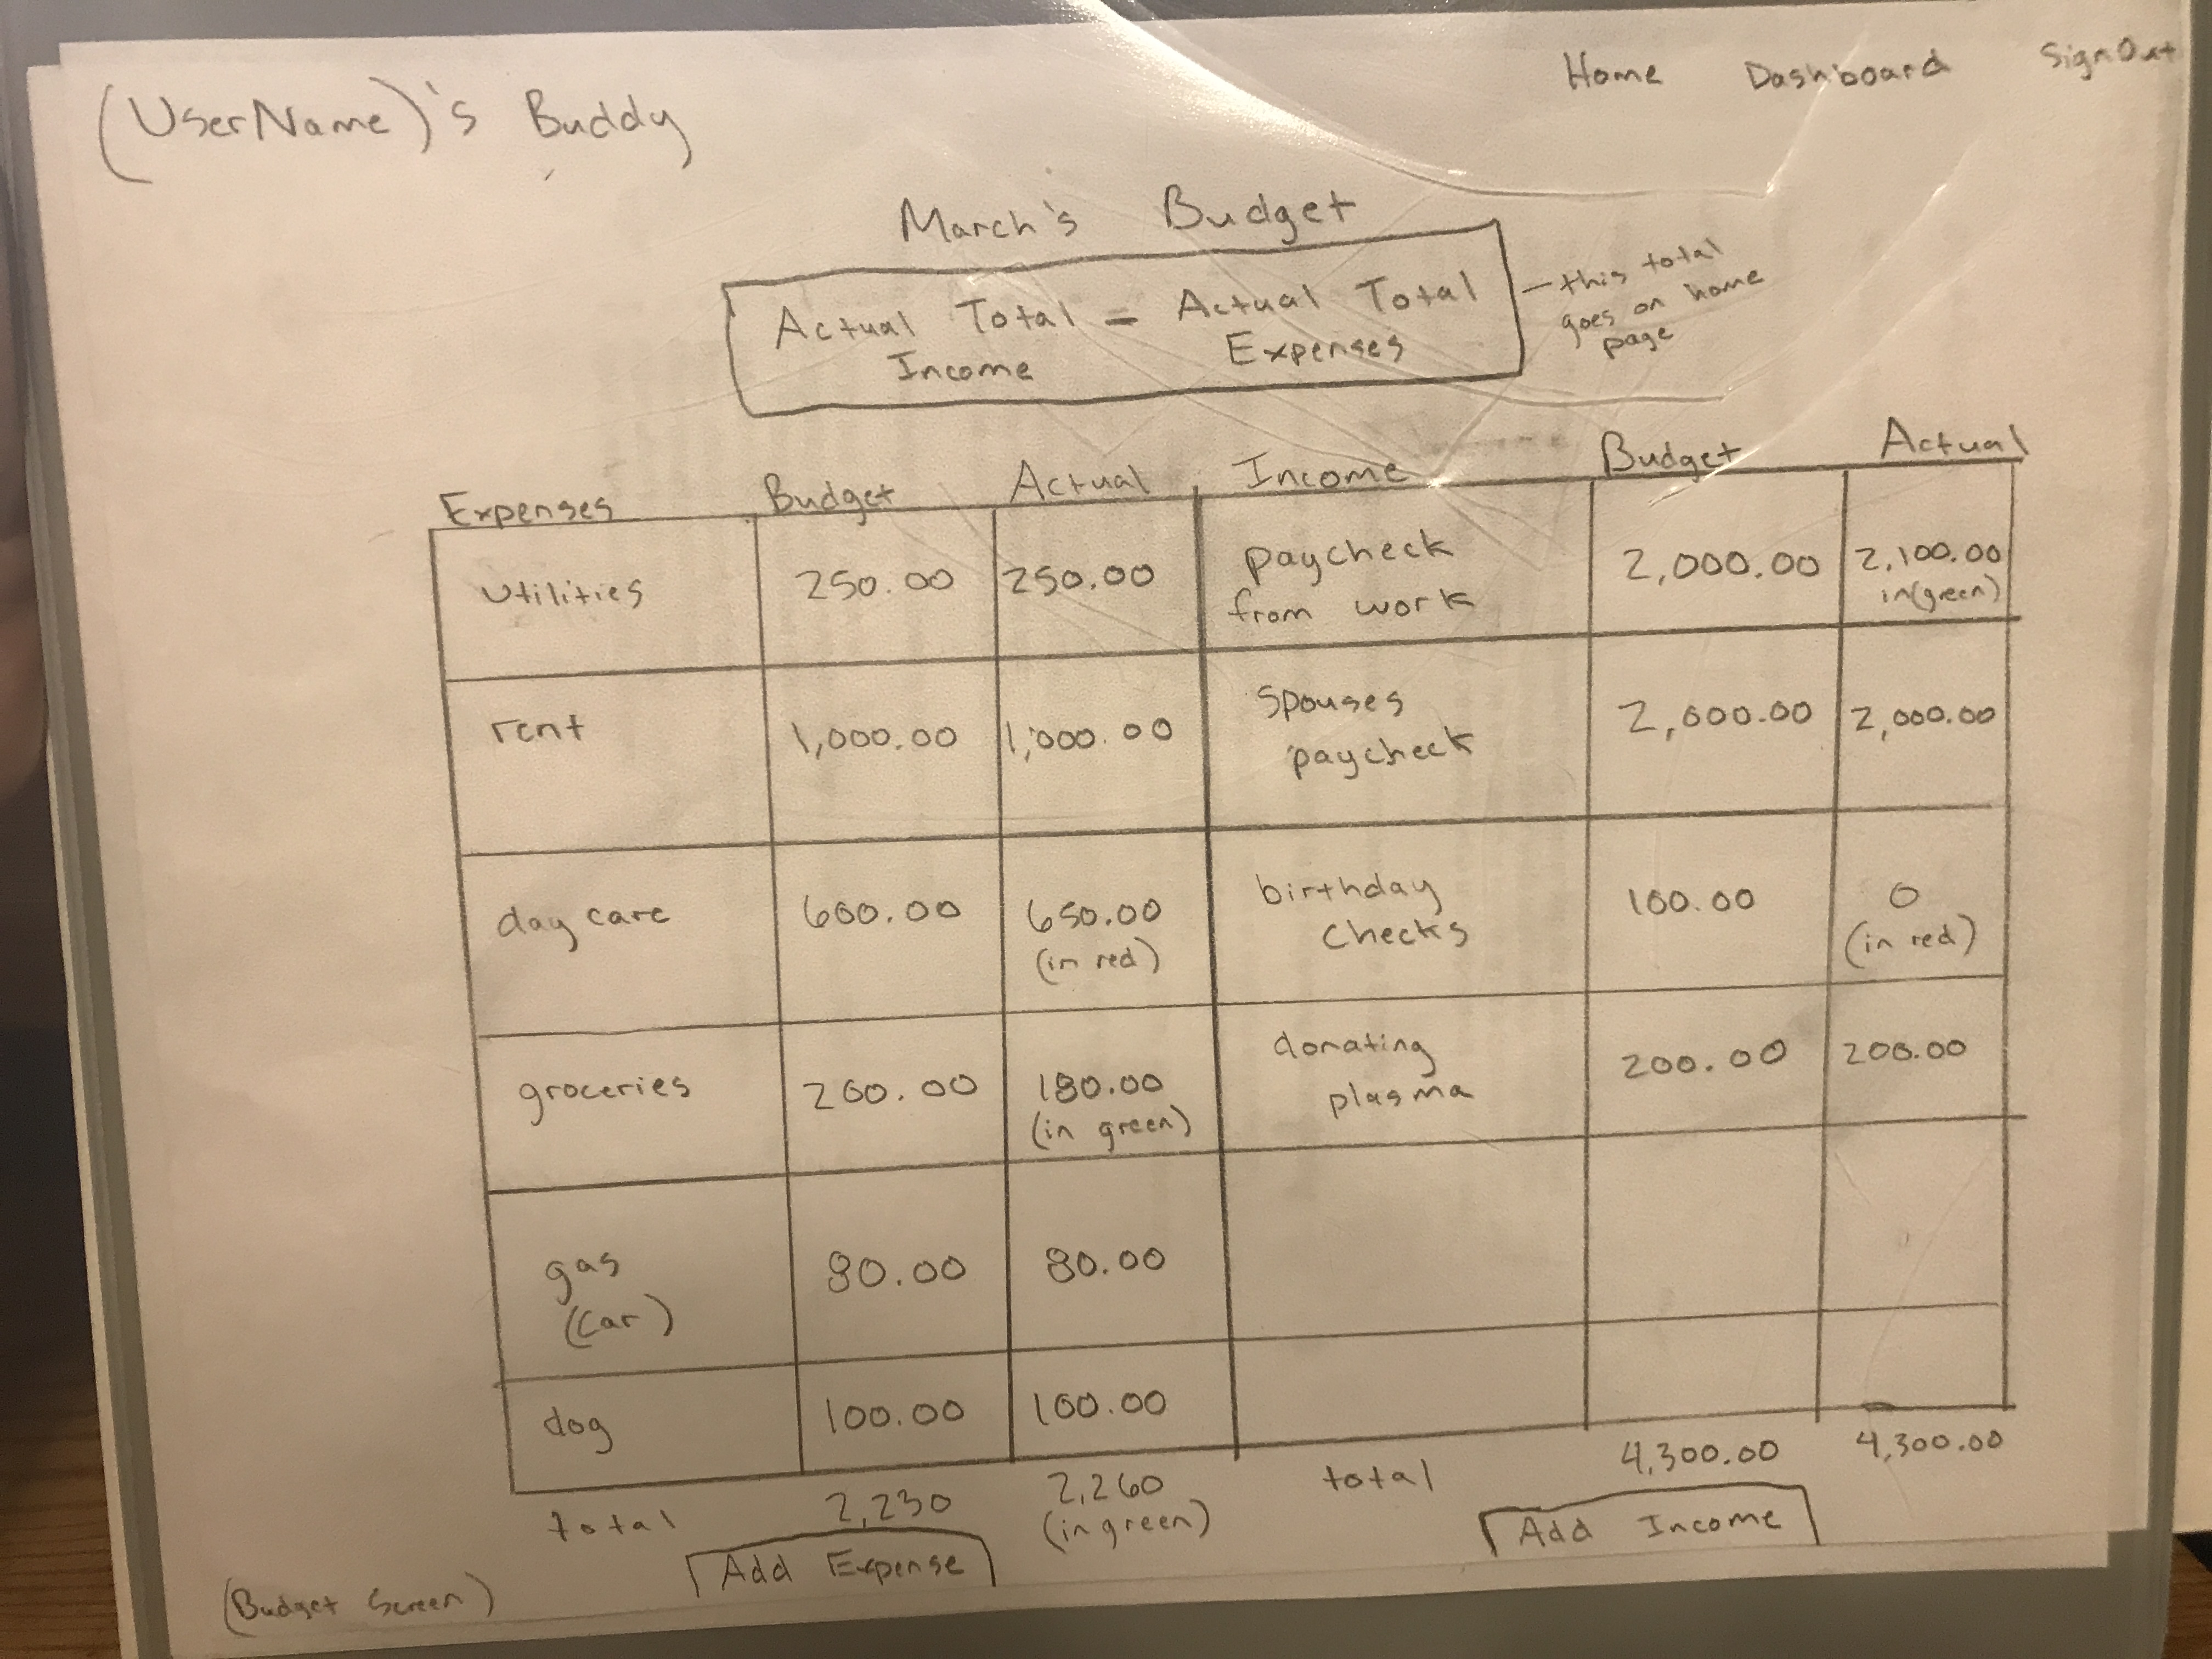 Home Dashboard SignOut
(UserName)'s Buddy
March's Budget
Actual Total = Actual Total
Income Expenses
— this total
goes on home
page
Expenses Budget Actual Income Budget Actual
utilities 250.00 250.00 paycheck from work 2,000.00 2,100.00 in(green)
rent 1,000.00 1,000.00 Spouses paycheck 2,000.00 2,000.00
day care 600.00 650.00 (in red) birthday checks 100.00 0 (in red)
groceries 200.00 180.00 (in green) donating plasma 200.00 200.00
gas (car) 80.00 80.00
dog 100.00 100.00
total 2,230 2,260 (in green) total 4,300.00 4,300.00
Add Expense Add Income
(Budget Screen)